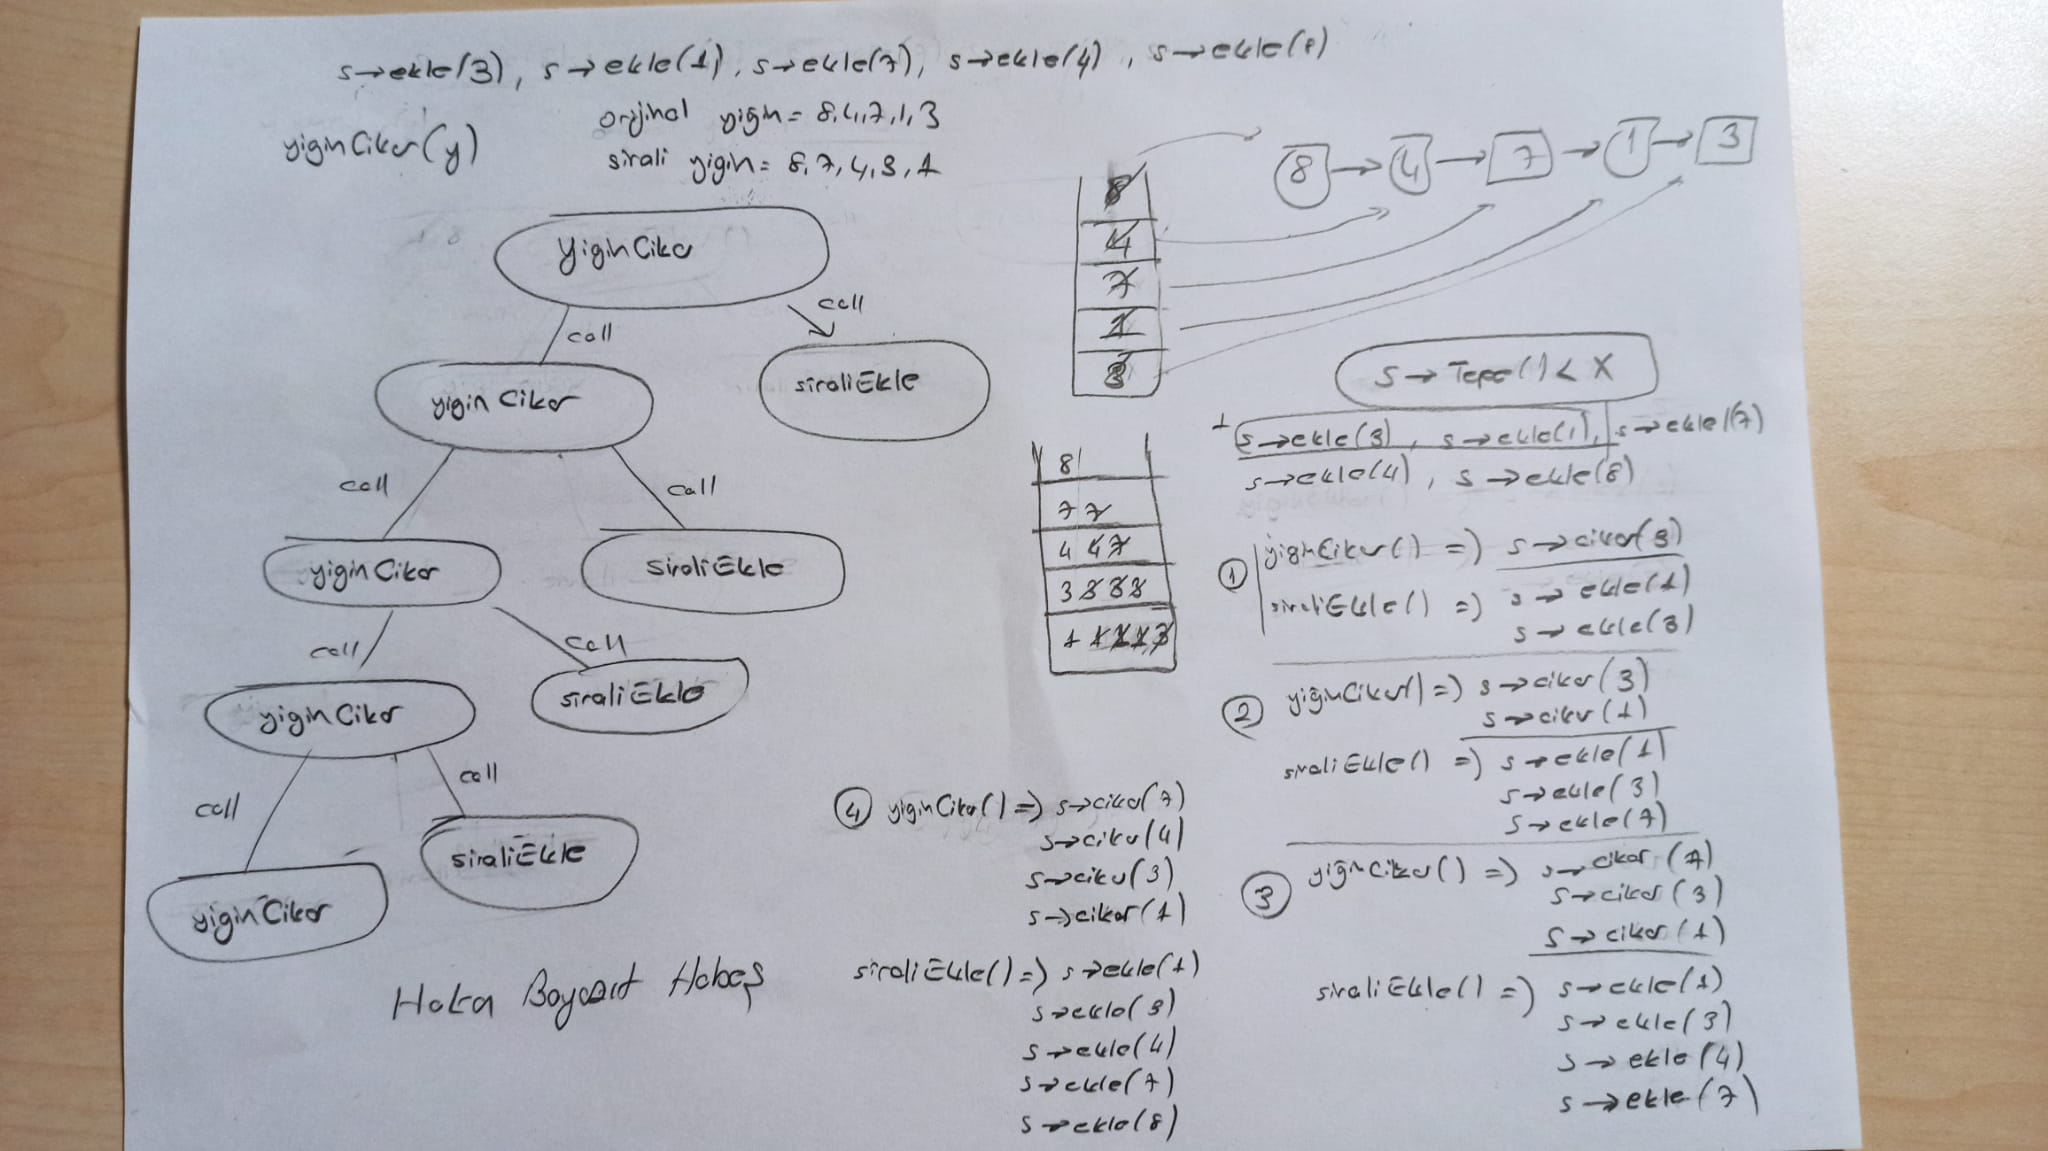 s→ekle(3), s→ekle(1), s→ekle(7), s→ekle(4), s→ekle(8)
yiginCikar(y)
orijinal yiğin = 8,4,7,1,3
sirali yigin = 8,7,4,3,1
8 → 4 → 7 → 1 → 3
8
4
7
1
3
YiginCika
call
call
yiginCikar
siraliEkle
call
call
yiginCikar
siraliEkle
call
call
yiginCikar
siraliEkle
call
call
yiginCikar
siraliEkle
8
7 7
4 4 7
3 3 3 3
1 1 1 1 3
s → Tepe() < X
s→ekle(3), s→ekle(1), s→ekle(7)
s→ekle(4), s→ekle(8)
1 yiginCikar() => s→cikar(3)
siraliEkle() => s→ekle(1)
s→ekle(3)
2 yiğinCikar() => s→cikar(3)
s→cikar(1)
siraliEkle() => s→ekle(1)
s→ekle(3)
s→ekle(7)
3 yiğinCikar() => s→cikar(7)
s→cikar(3)
s→cikar(1)
siraliEkle() => s→ekle(1)
s→ekle(3)
s→ekle(4)
s→ekle(7)
4 yiginCikar() => s→cikar(7)
s→cikar(4)
s→cikar(3)
s→cikar(1)
siraliEkle() => s→ekle(1)
s→ekle(3)
s→ekle(4)
s→ekle(7)
s→ekle(8)